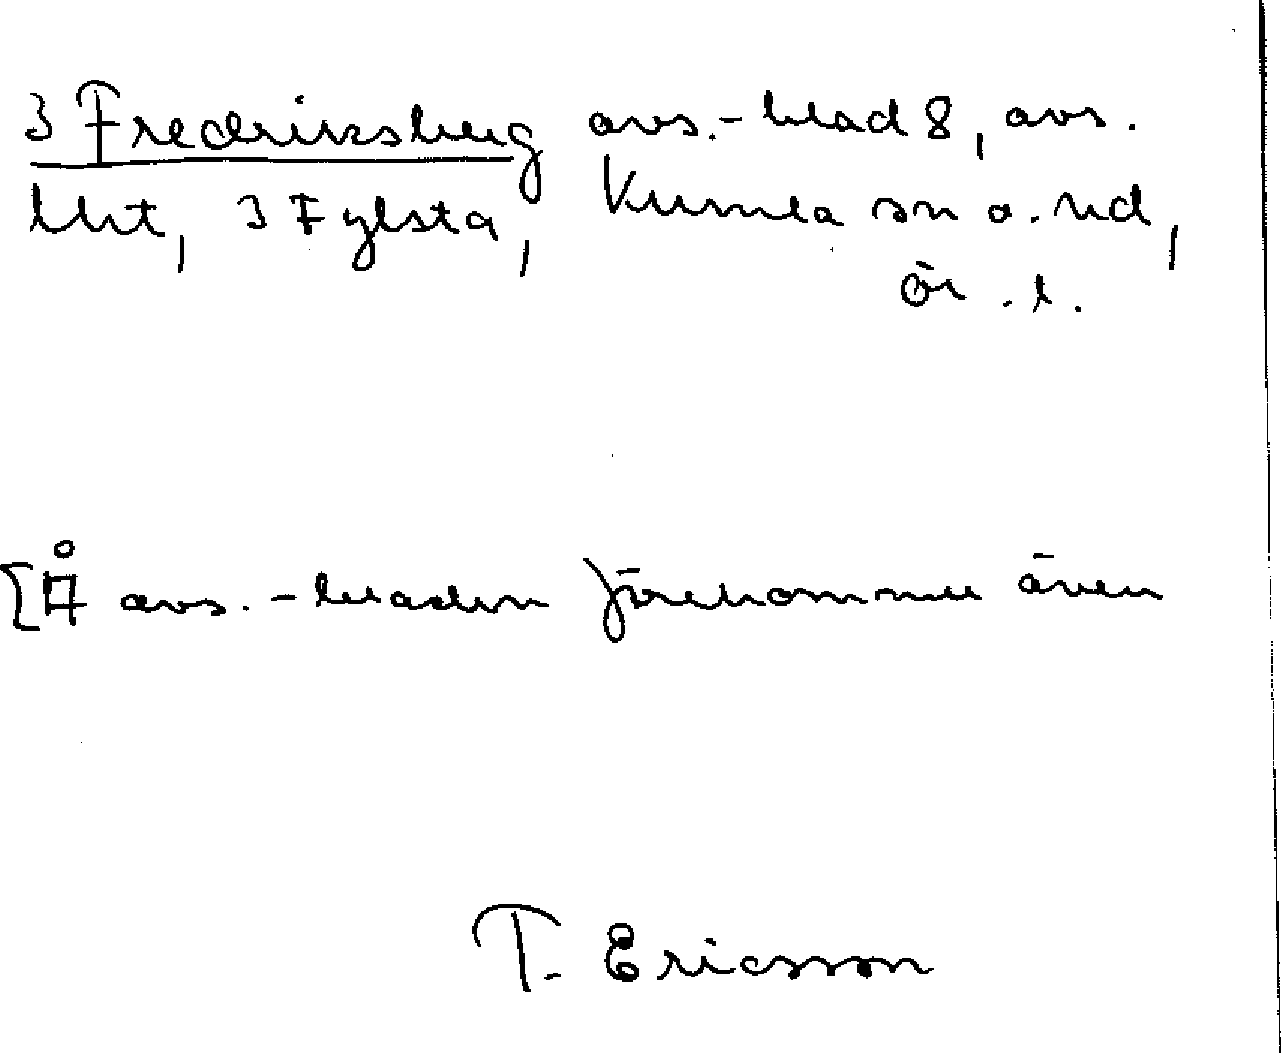 3 Fredriksberg avs.-blad 8, avs.
till, 3 Fylsta, Kumla sn o. hd,
Ör. l.
[Å avs.-bladen förekommer även
T. Ericsson